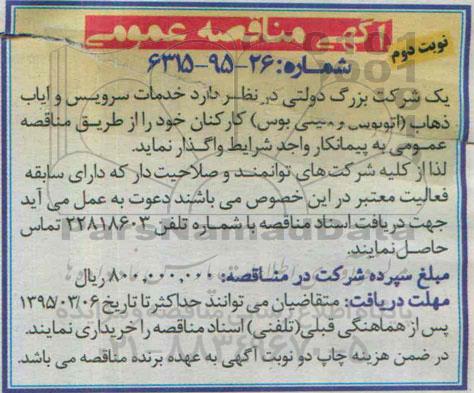 آگهی مناقصه عمومی
نوبت دوم
شماره: ۲۶-۹۵-۶۳۱۵
یک شرکت بزرگ دولتی در نظر دارد خدمات سرویس و ایاب
ذهاب (اتوبوس و مینی بوس) کارکنان خود را از طریق مناقصه
عمومی به پیمانکار واجد شرایط واگذار نماید.
لذا از کلیه شرکت‌های توانمند و صلاحیت‌دار که دارای سابقه
فعالیت معتبر در این خصوص می باشند دعوت به عمل می آید
جهت دریافت اسناد مناقصه با شماره تلفن ۲۲۸۱۸۶۰۳ تماس
حاصل نمایند.
مبلغ سپرده شرکت در مناقصه: ۸۰۰,۰۰۰,۰۰۰ ریال
مهلت دریافت: متقاضیان می توانند حداکثر تا تاریخ ۱۳۹۵/۰۳/۰۶
پس از هماهنگی قبلی (تلفنی) اسناد مناقصه را خریداری نمایند.
در ضمن هزینه چاپ دو نوبت آگهی به عهده برنده مناقصه می باشد.
ParsNamadData